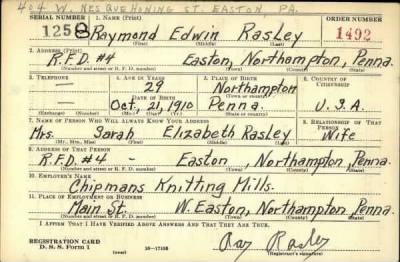 404 W. NESQUEHONING ST. EASTON PA.
SERIAL NUMBER 1. NAME (Print) ORDER NUMBER
1258 Raymond Edwin Rasley 1492
(First) (Middle) (Last)
2. ADDRESS (Print)
R.F.D. #4 Easton, Northampton, Penna.
(Number and street or R. F. D. number) (Town) (County) (State)
3. TELEPHONE 4. AGE IN YEARS 5. PLACE OF BIRTH 6. COUNTRY OF CITIZENSHIP
— 29 Northampton
DATE OF BIRTH (Town or county)
— Oct, 21, 1910 Penna. U.S.A.
(Exchange) (Number) (Mo.) (Day) (Yr.) (State or country)
7. NAME OF PERSON WHO WILL ALWAYS KNOW YOUR ADDRESS 8. RELATIONSHIP OF THAT PERSON
Mrs. Sarah Elizabeth Rasley Wife
(Mr., Mrs., Miss) (First) (Middle) (Last)
9. ADDRESS OF THAT PERSON
R.F.D. #4 - Easton, Northampton, Penna.
(Number and street or R. F. D. number) (Town) (County) (State)
10. EMPLOYER'S NAME
Chipmans Knitting Mills.
11. PLACE OF EMPLOYMENT OR BUSINESS
Main St. W. Easton, Northampton, Penna.
(Number and street or R. F. D. number) (Town) (County) (State)
I AFFIRM THAT I HAVE VERIFIED ABOVE ANSWERS AND THAT THEY ARE TRUE.
REGISTRATION CARD
D. S. S. Form 1 (over) 16-17105 Ray Rasley
(Registrant's signature)